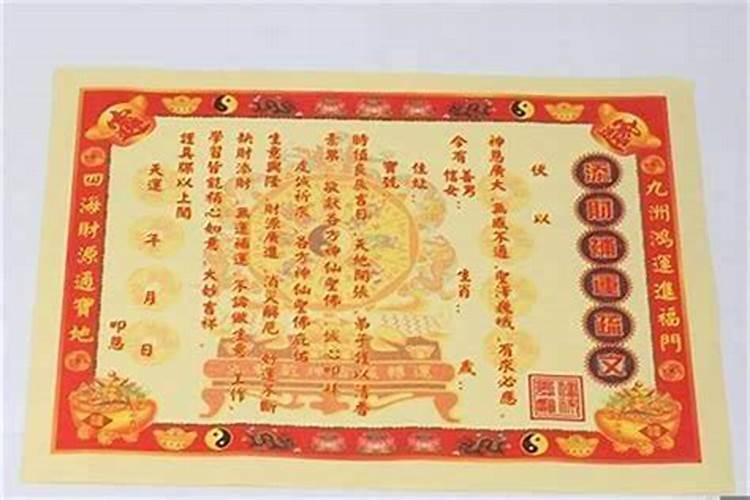 九洲鴻運進福門
添財補運疏文
伏以
神恩廣大 無感不通 聖澤巍峨 有求必應
今有善男信女： 生肖： 歲：
住址：
寶號
時值良辰吉日 天地開張 弟子僅以清香
素果 敬獻各方神仙聖佛 誠心叩拜
虔誠祈求 各方神仙聖佛庇佑
生意興隆 財源廣進 消災解厄 好運不斷
缺財添財 無運補運 不論做生意 工作、
學習皆能稱心如意、大妙吉祥、
謹具疏以上聞
天運 年 月 日
叩懇
四海財源通寶地